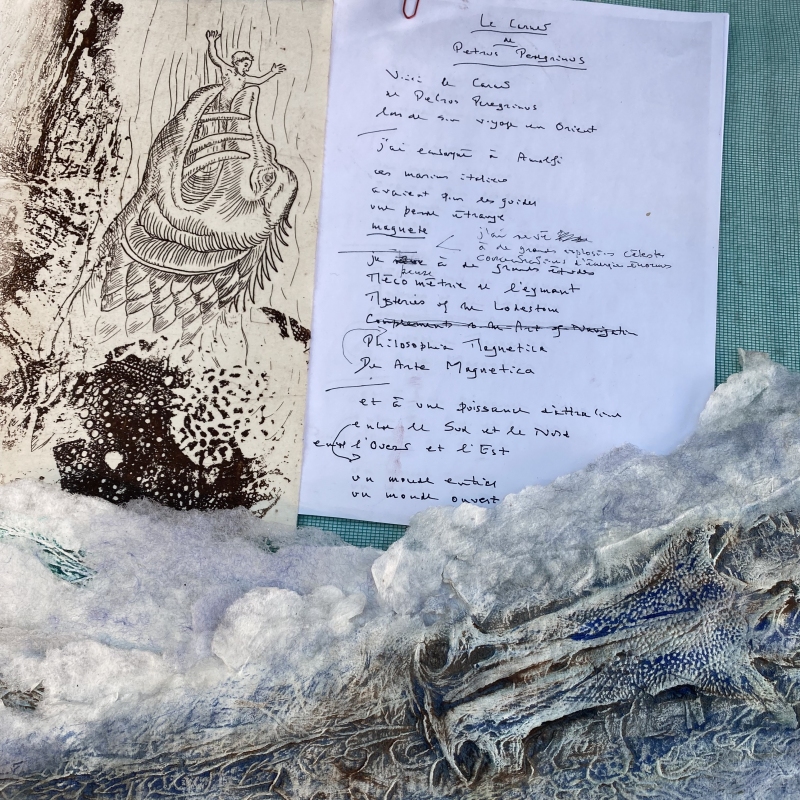 Le Carnet
de
Petrus Peregrinus
Voici le Carnet
de Petrus Peregrinus
lors de son voyage en Orient
j'ai embarqué à Amalfi
ces marins italiens
avaient pour les guider
une pierre étrange
magnete
j'ai rêvé
à de grandes explosions célestes
concentrations d'énergie énormes
je à de grands études
pense
Mécométrie de l'eymant
Mysteries of the Lodestone
Complements to the Art of Navigation
Philosophia Magnetica
De Arte Magnetica
et à une puissance d'attraction
entre le Sud et le Nord
entre l'Ouest et l'Est
un monde entier
un monde ouvert